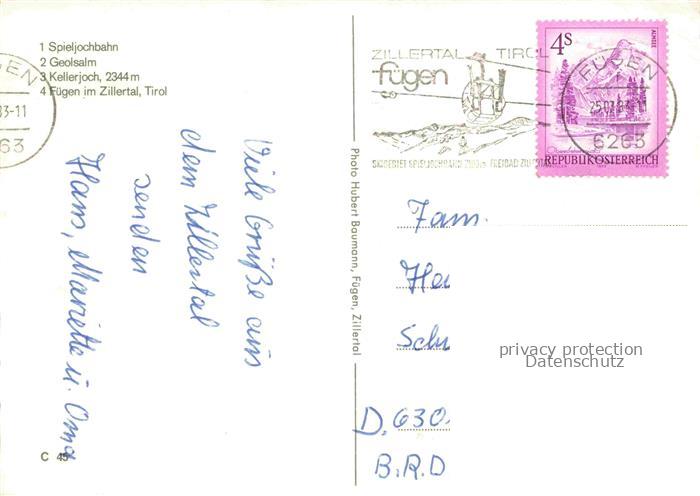 1 Spieljochbahn
2 Geolsalm
3 Kellerjoch, 2344 m
4 Fügen im Zillertal, Tirol
FÜGEN
83-11
6263
Viele Grüße aus
dem Zillertal
senden
Hans, Mariette u. Oma
C 45
Photo Hubert Baumann, Fügen, Zillertal
ZILLERTAL TIROL
fügen
SKIGEBIET SPIELJOCHBAHN FREIBAD
FÜGEN
25.07.83-11
6263
4S
ALMSEE
REPUBLIK ÖSTERREICH
Fam.
He
Sch
privacy protection
Datenschutz
D. 630.
B.R.D